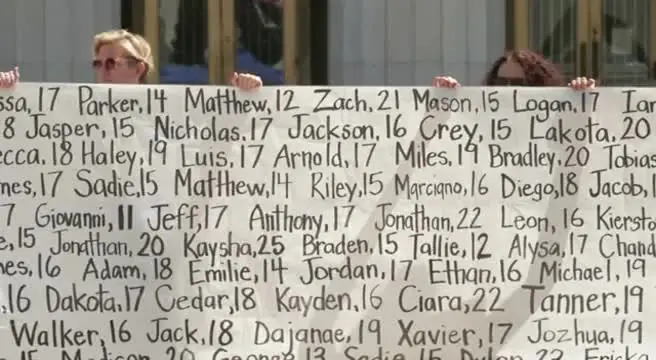 ssa, 17 Parker, 14 Matthew, 12 Zach, 21 Mason, 15 Logan, 17 Ian
8 Jasper, 15 Nicholas, 17 Jackson, 16 Crey, 15 Lakota, 20
ecca, 18 Haley, 19 Luis, 17 Arnold, 17 Miles, 19 Bradley, 20 Tobias
nes, 17 Sadie, 15 Matthew, 14 Riley, 15 Marciano, 16 Diego, 18 Jacob, 1
7 Giovanni, 11 Jeff, 17 Anthony, 17 Jonathan, 22 Leon, 16 Kiersto
e, 15 Jonathan, 20 Kaysha, 25 Braden, 15 Tallie, 12 Alysa, 17 Chand
nes, 16 Adam, 18 Emilie, 14 Jordan, 17 Ethan, 16 Michael, 19
, 16 Dakota, 17 Cedar, 18 Kayden, 16 Ciara, 22 Tanner, 19
Walker, 16 Jack, 18 Dajanae, 19 Xavier, 17 Jozhua, 19
15 Madison, 20 George, 13 Sadie, 15 Dylan, 22 Ericka